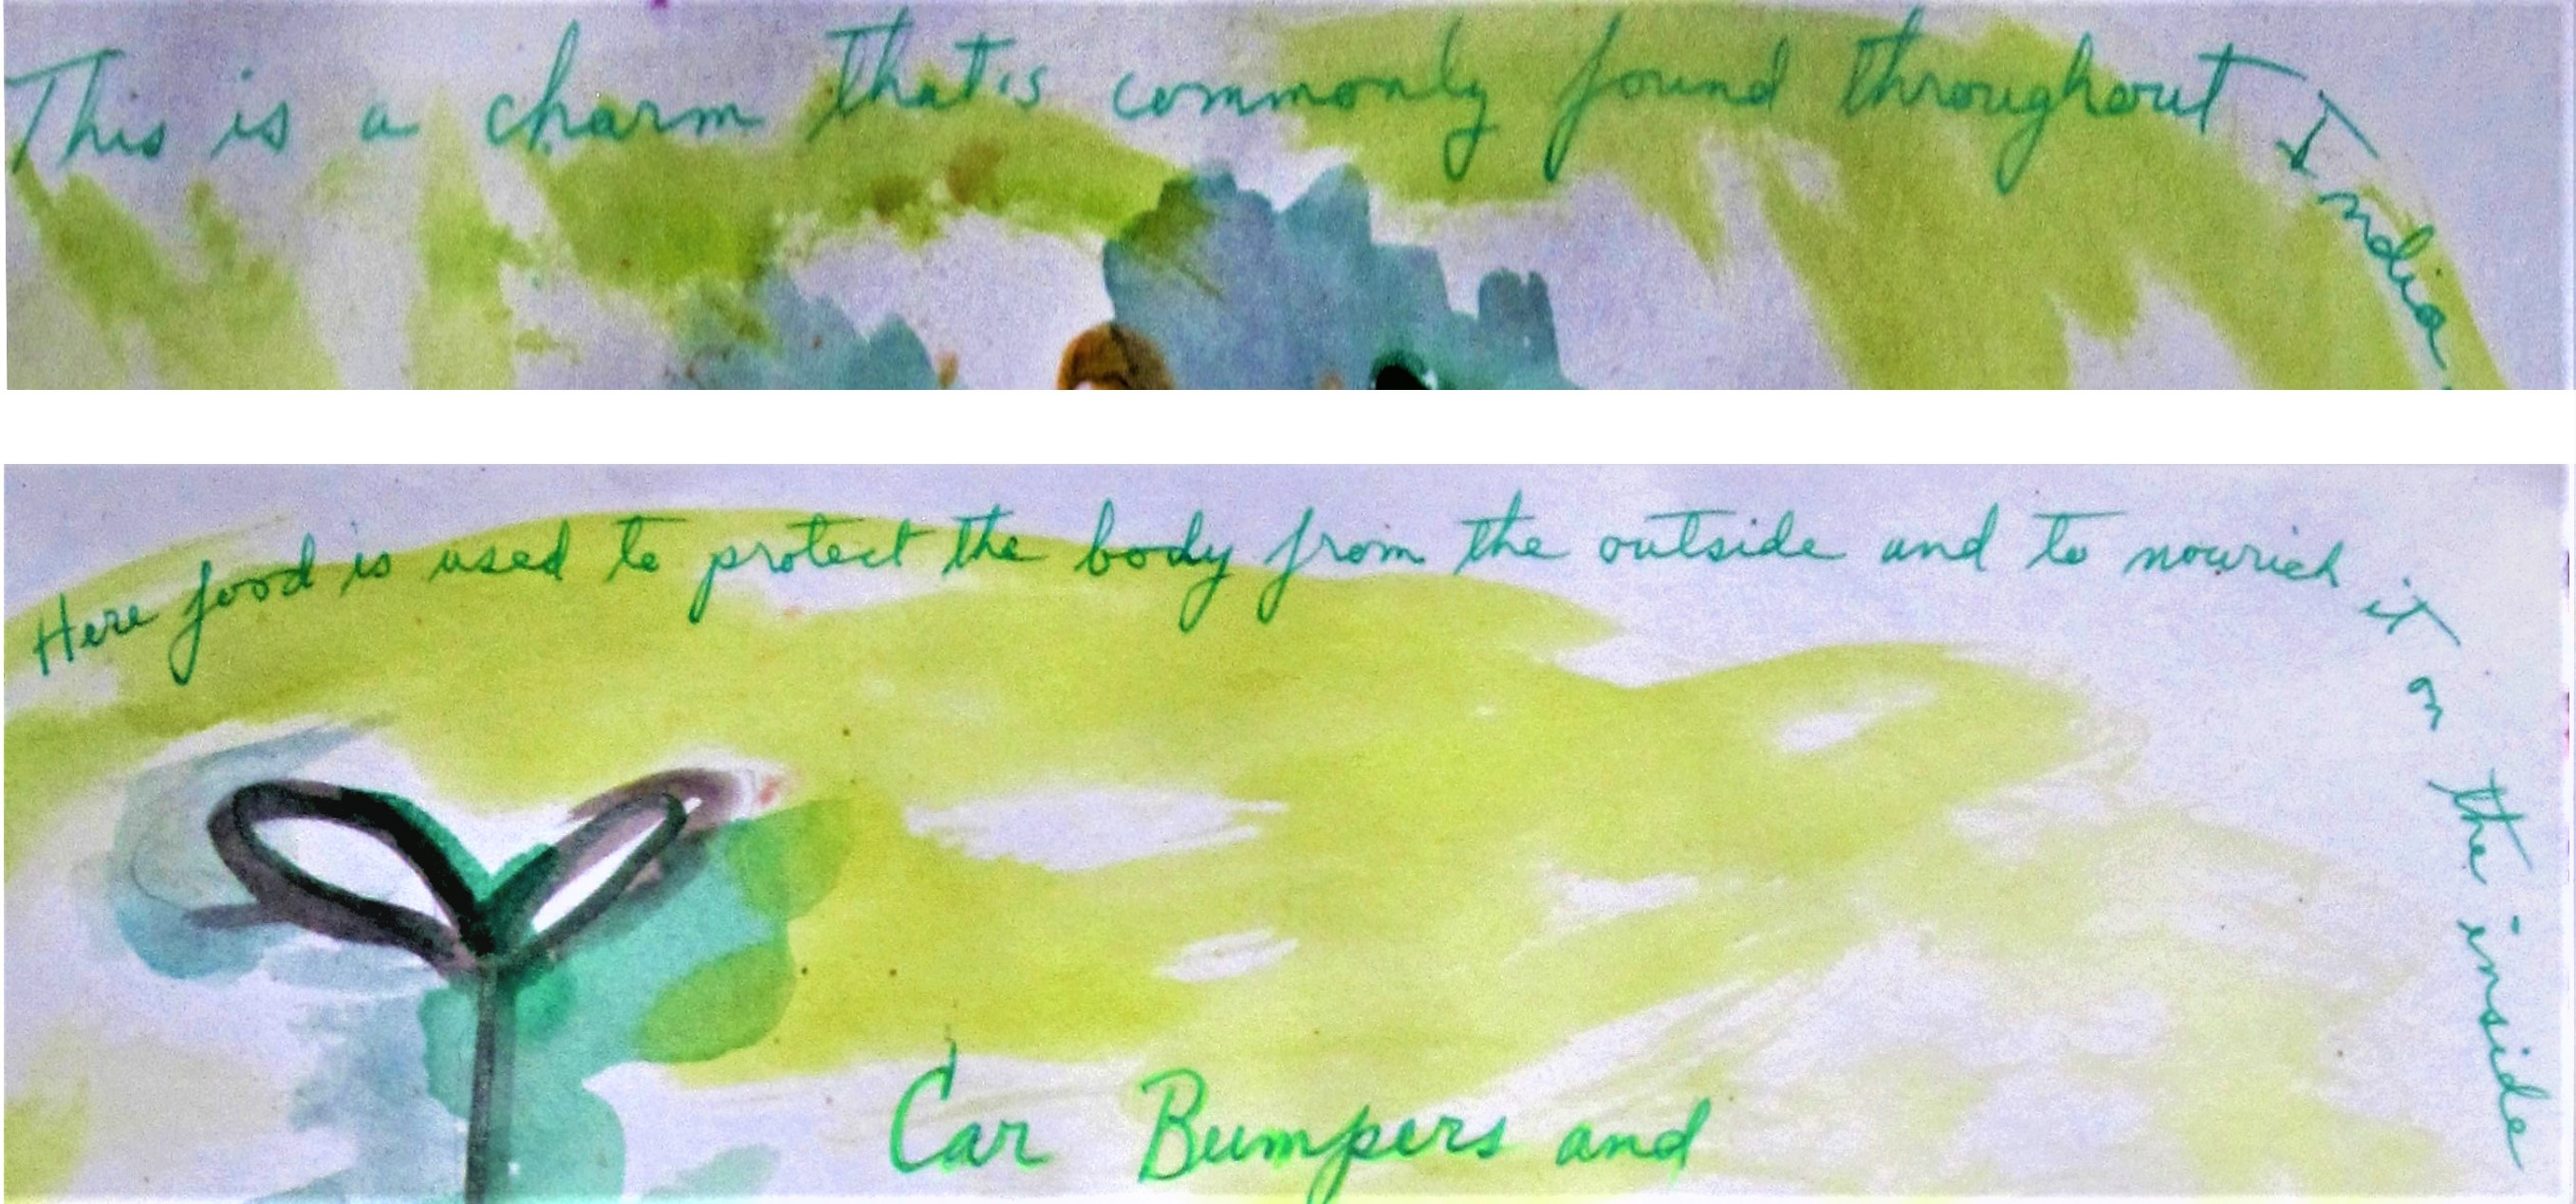 This is a charm that's commonly found throughout India.
Here food is used to protect the body from the outside and to nourish it on the inside
Car Bumpers and